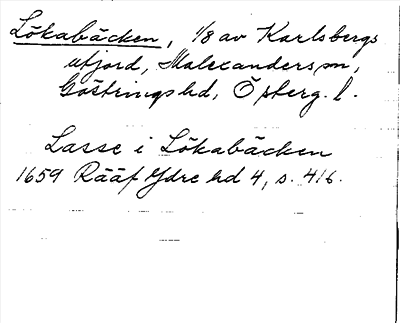 Lökabäcken, 1/8 av Karlsbergs
utjord, Malexanders sn,
Göstrings hd, Ö sberg. l.
Lasse i Lökabäcken
1659 Rääf Ydre hd 4, s. 416.